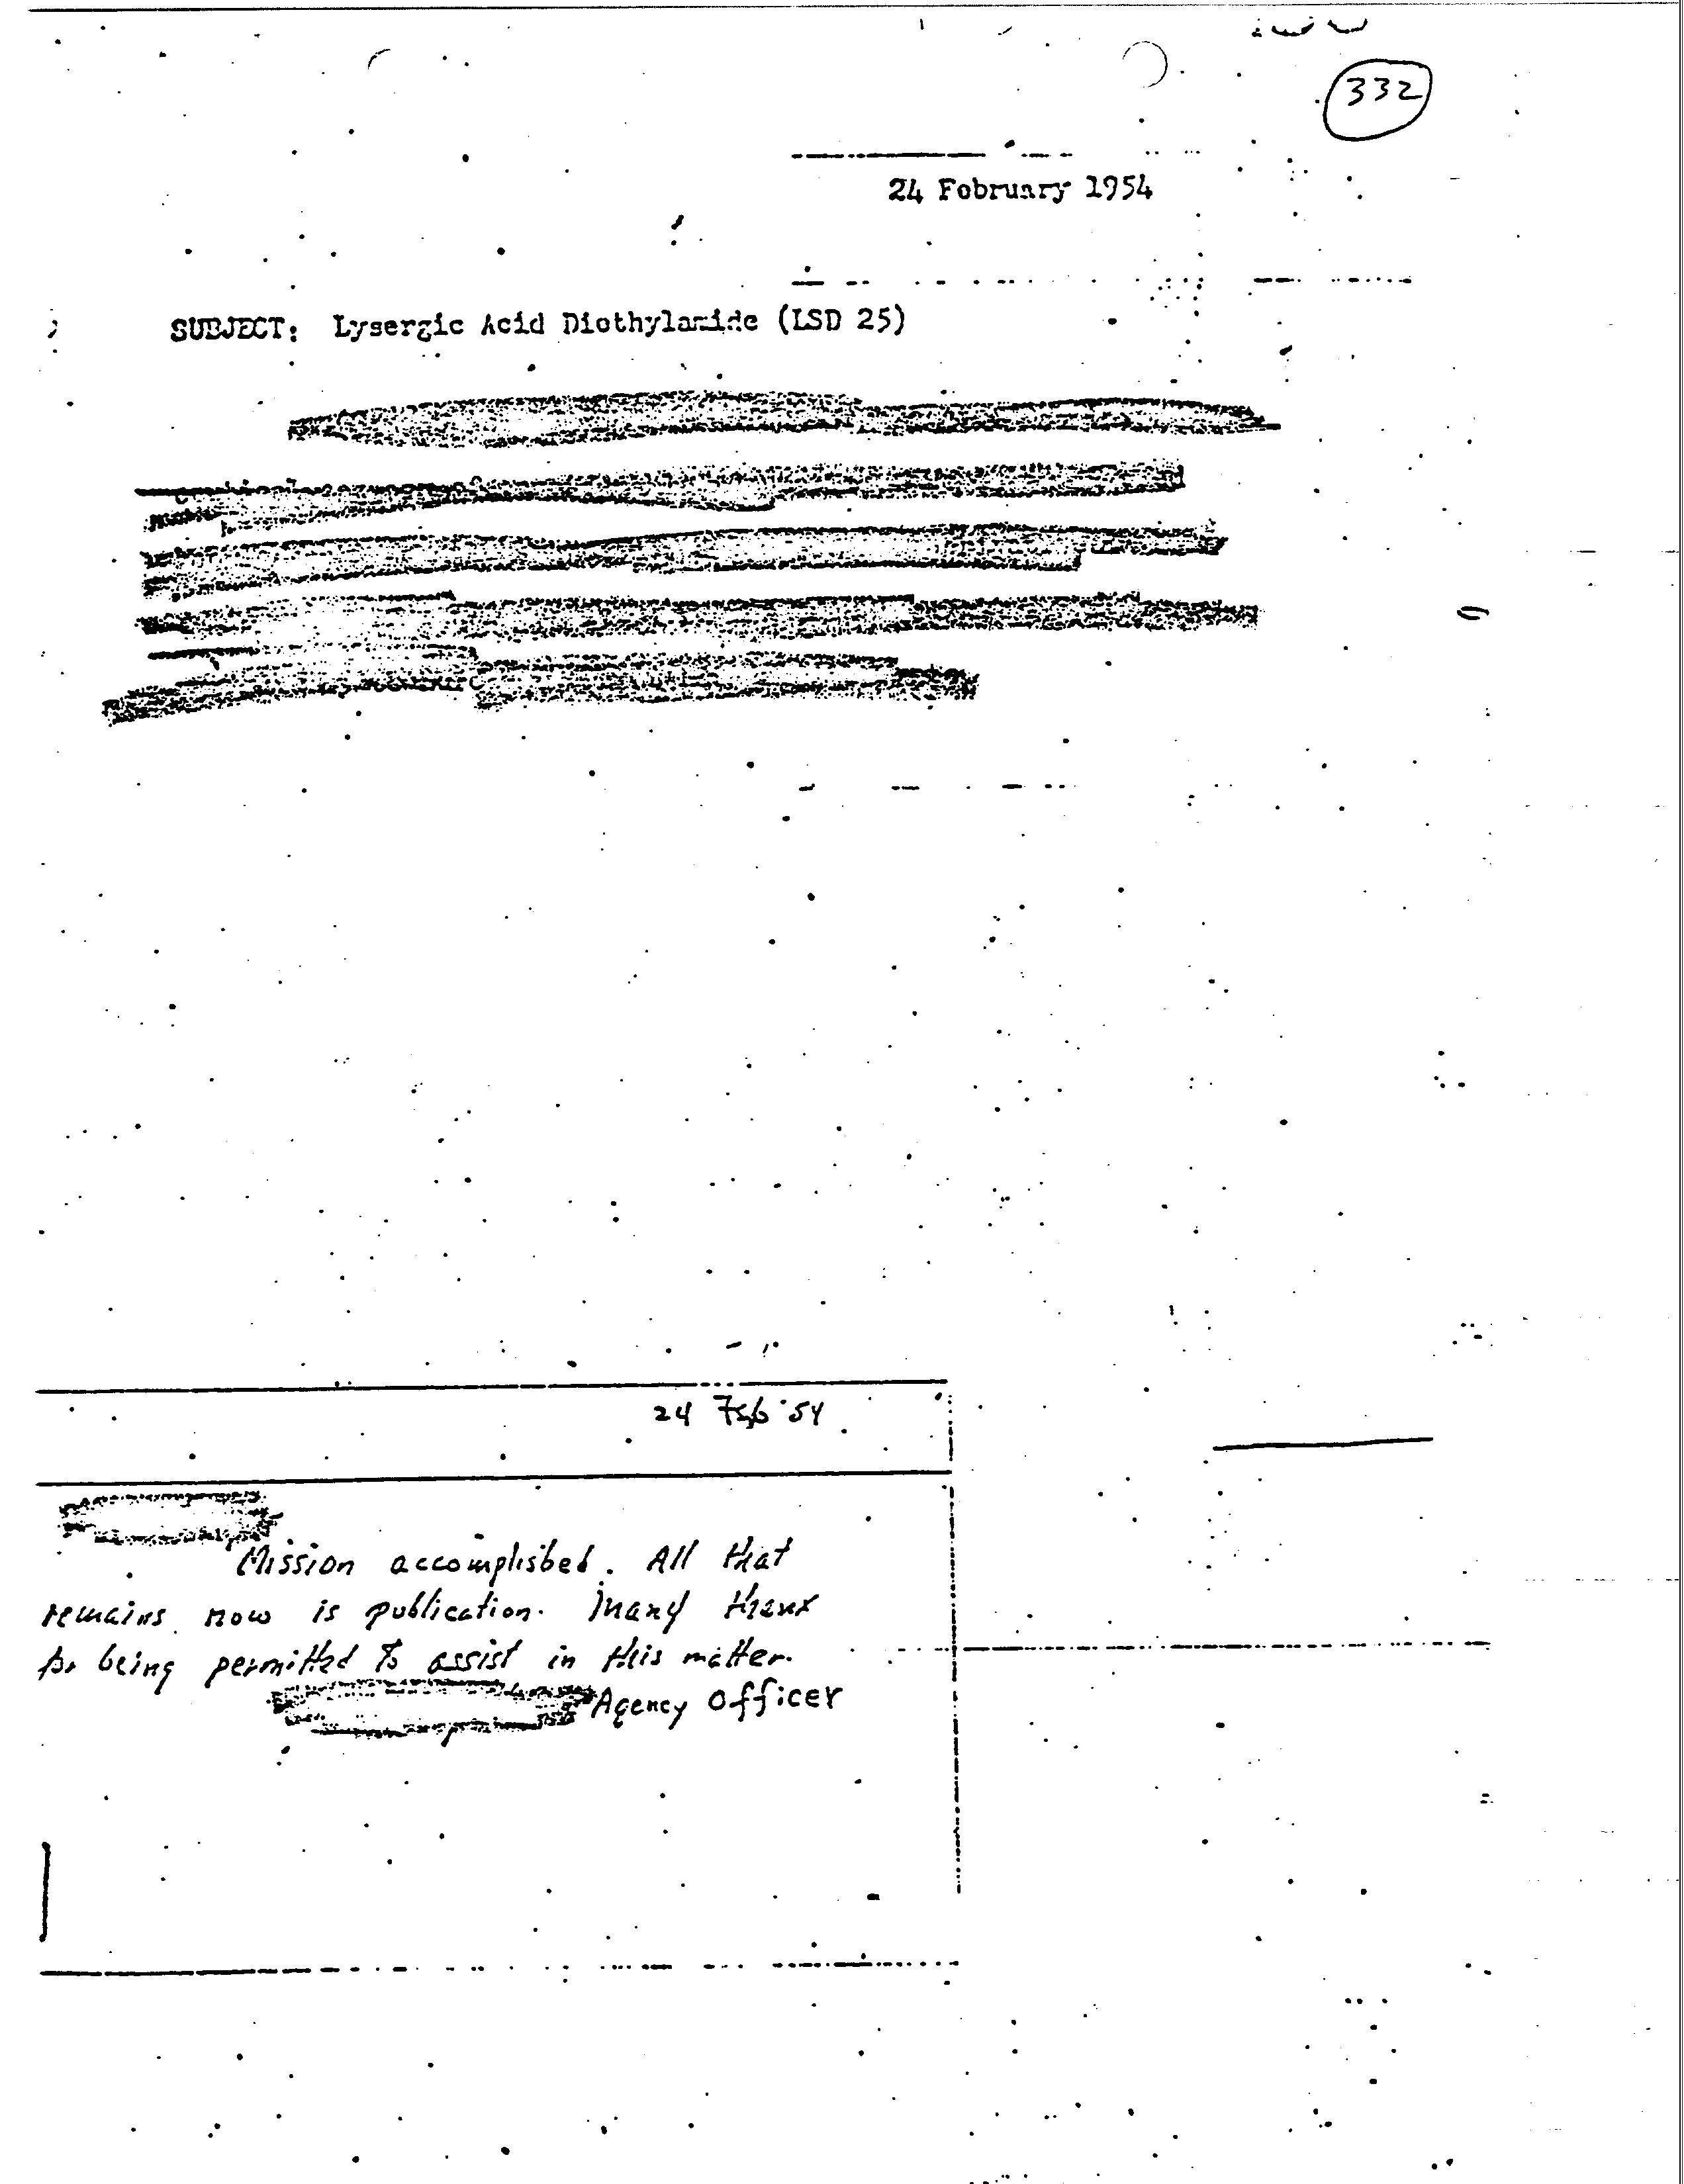 332
24 February 1954
SUBJECT: Lysergic Acid Diethylamide (LSD 25)
24 Feb '54
Mission accomplished. All that
remains now is publication. Many thanx
for being permitted to assist in this matter.
Agency Officer